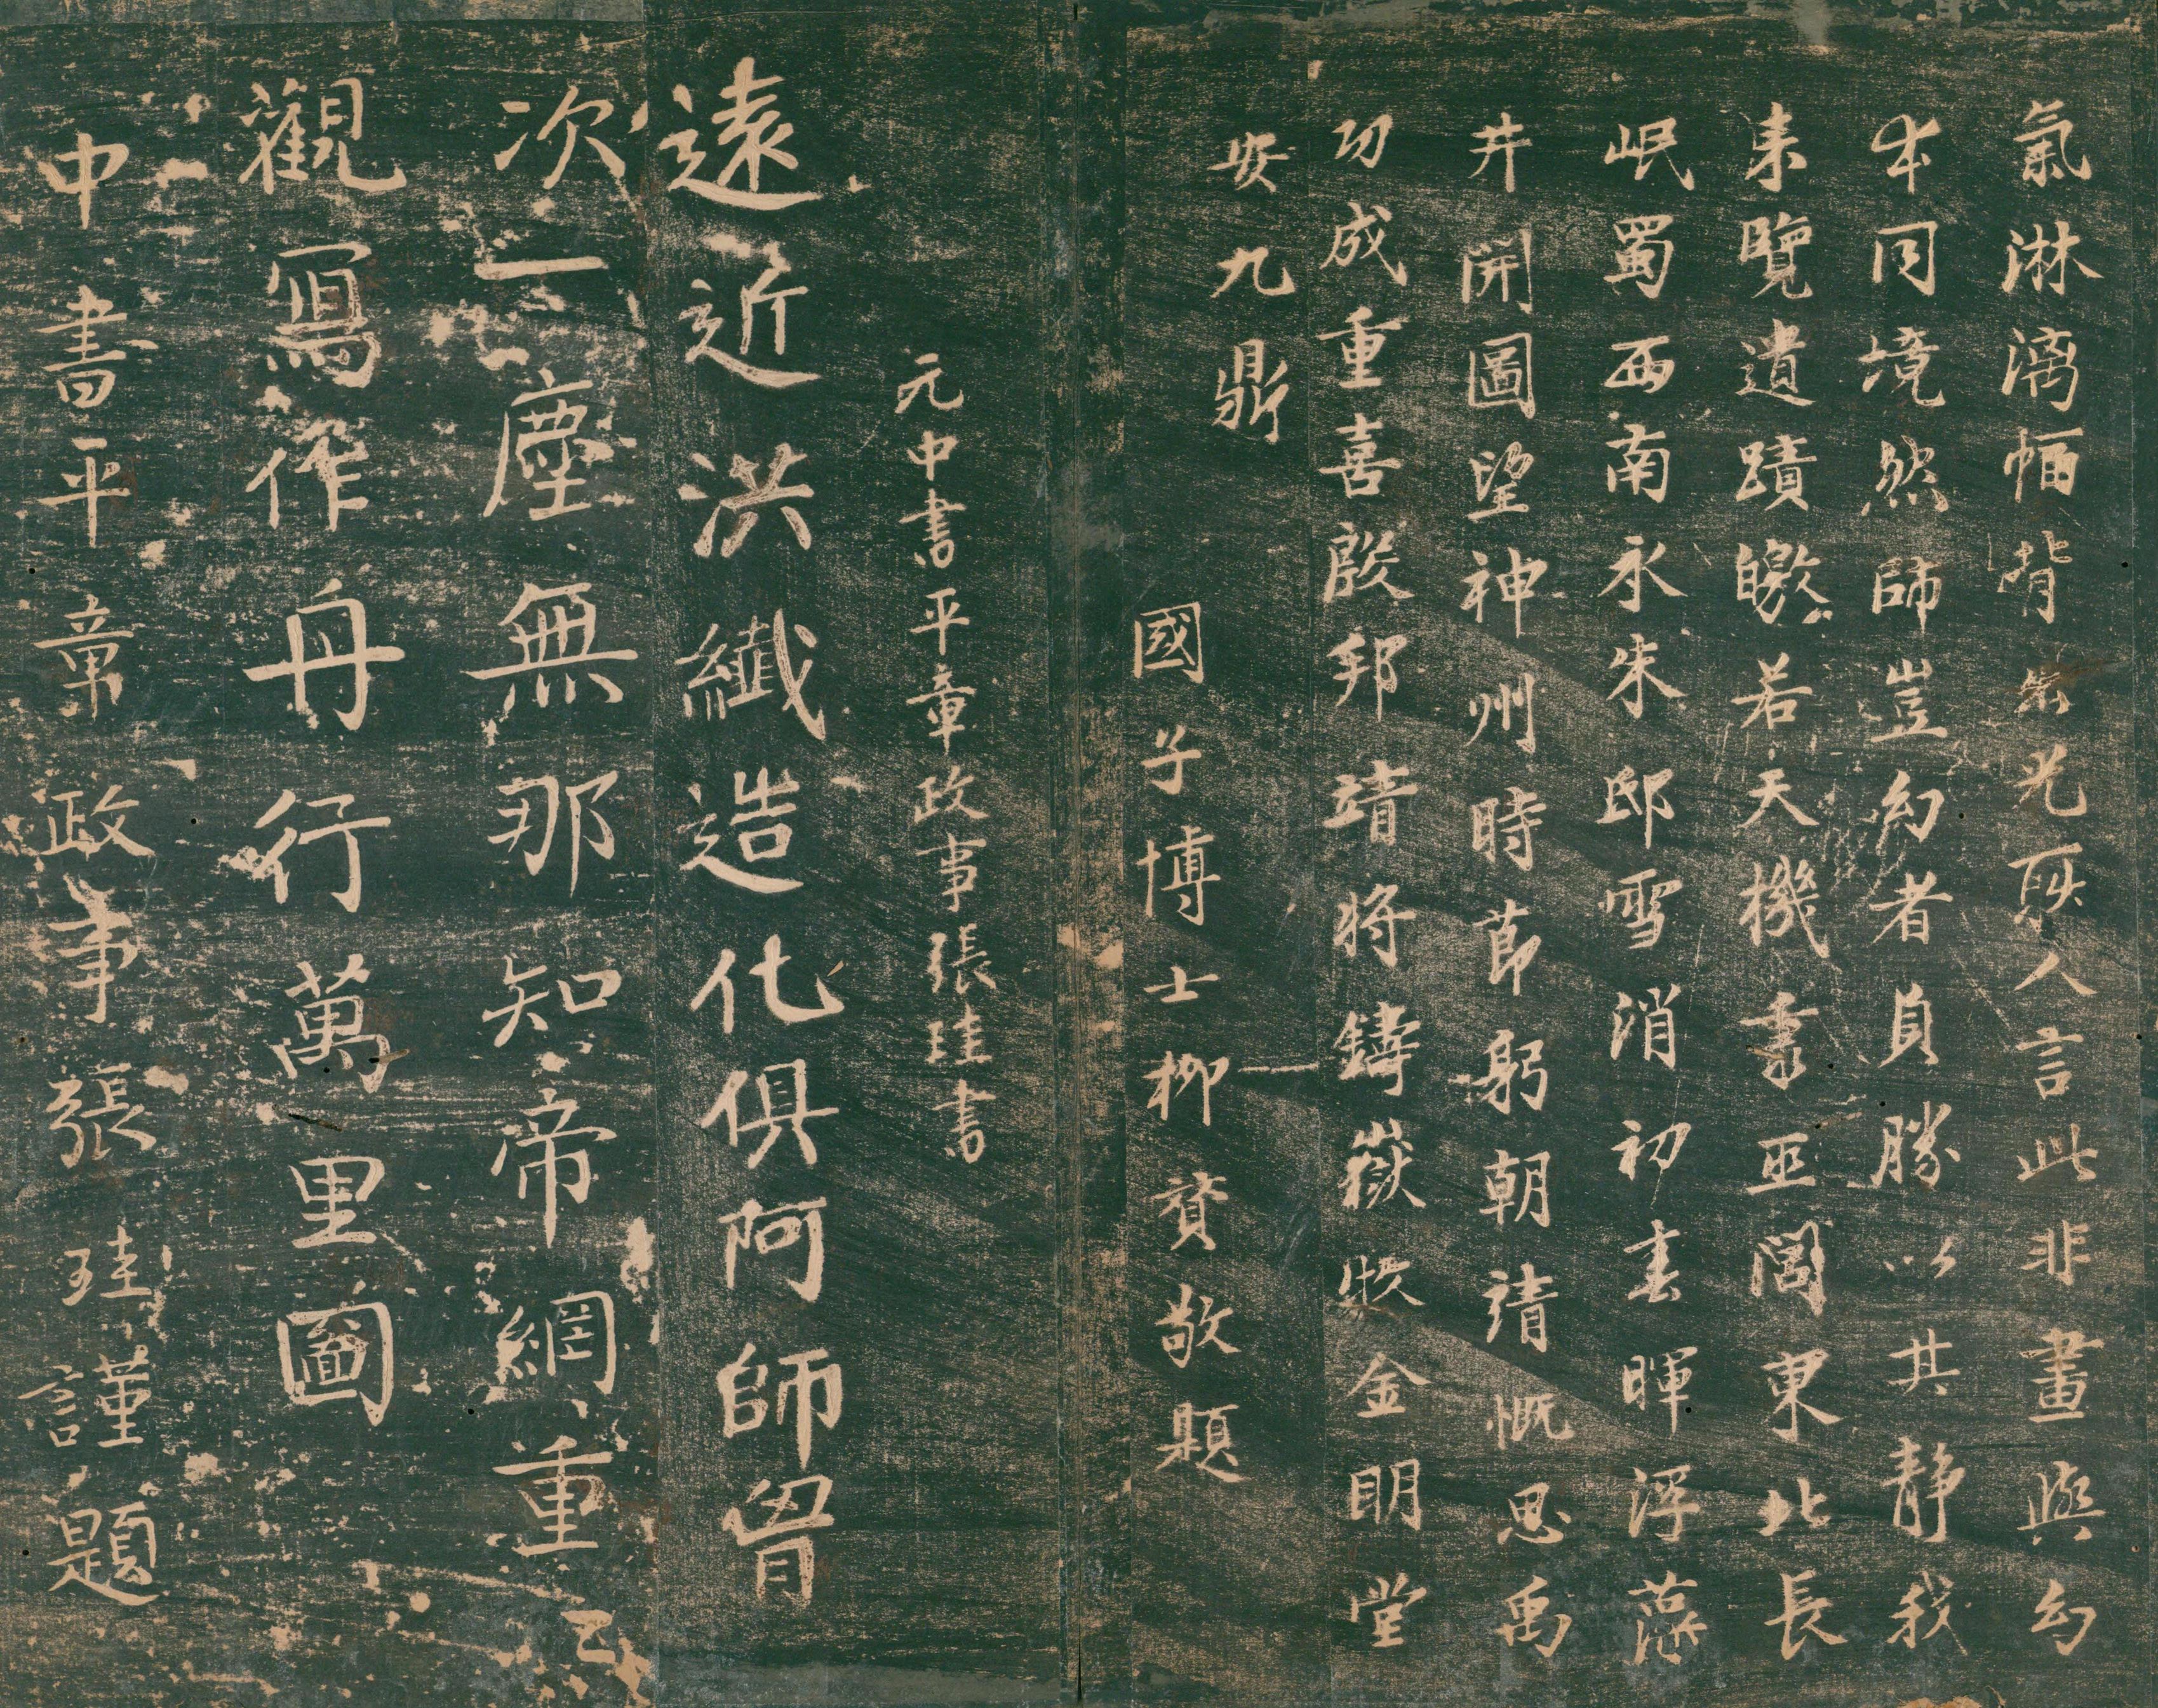 氣淋漓幅背光耿人言此非畫與幻
本同境然師豈幻者勝以其靜我
来覽遺蹟皦若天機巫閭東北長
岷蜀西南永朱邸雪消初春暉浮藻
井開圖望神州時節躬朝請慨思禹
功成重喜殷邦靖將鑄嶽牧金明堂
安九鼎
國子博士柳貫敬題
元中書平章政事張珪書
遠近洪纖造化俱阿師胷
次一塵無那知帝網重〻
觀寫作舟行萬里圖
中書平章政事張珪謹題